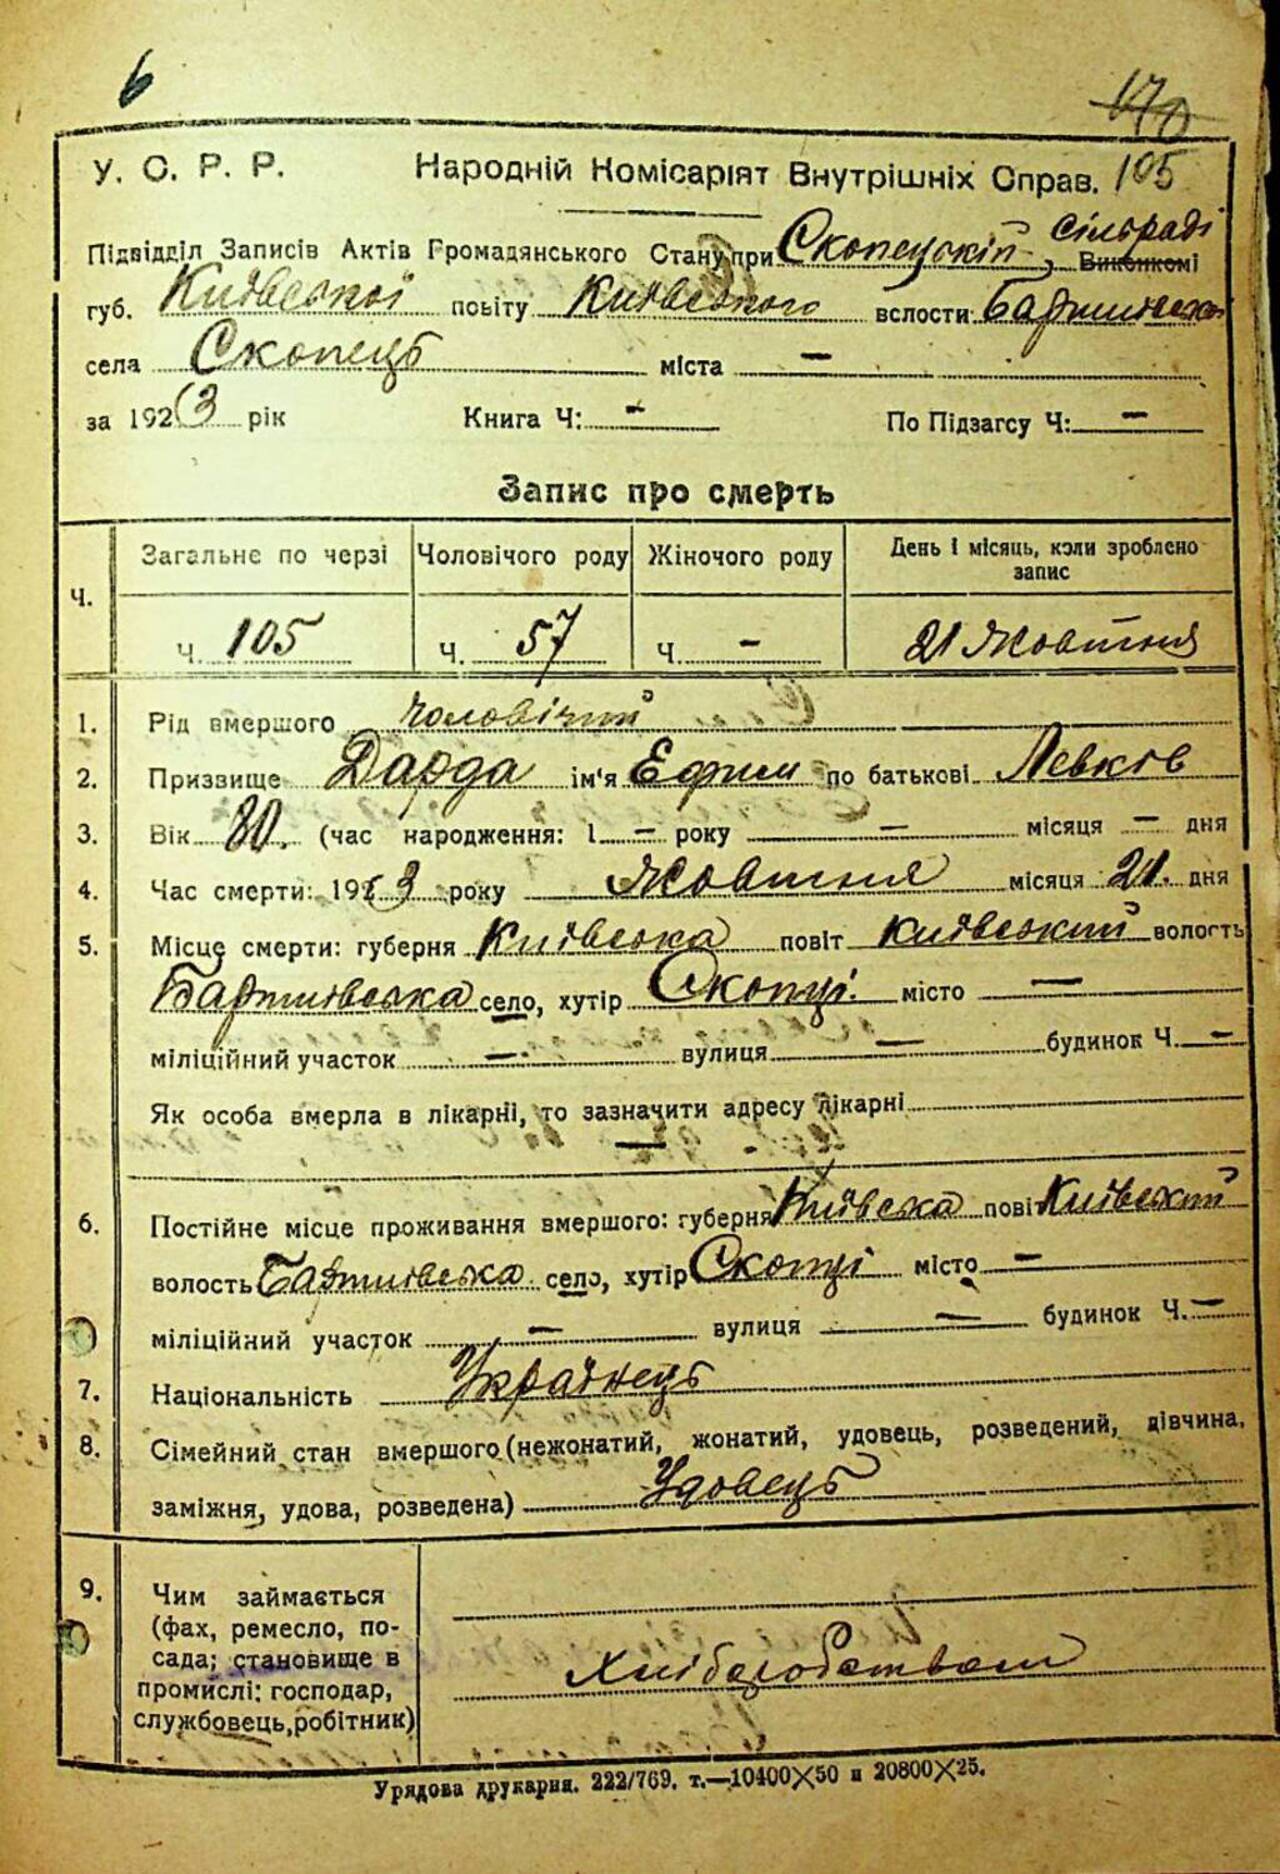 6
170
У. С. Р. Р. Народній Комісаріят Внутрішніх Справ. 105
Підвідділ Записів Актів Громадянського Стану при Скопецькій Сільраді Виконкомі
губ. Київської повіту Київського волости Баришівської
села Скопець міста —
за 1923 рік Книга Ч: — По Підзагсу Ч: —
Запис про смерть
Ч. Загальне по черзі Чоловічого роду Жіночого роду День і місяць, коли зроблено запис
Ч. 105 Ч. 57 Ч. — 21 Жовтня
1. Рід вмершого чоловічий
2. Призвище Дарда ім'я Ефим по батькові Левків
3. Вік 80. (час народження: 1 — року — місяця — дня
4. Час смерти: 1923 року Жовтня місяця 21. дня
5. Місце смерти: губерня Київська повіт Київський волость
Баришівська село, хутір Скопці. місто —
міліційний участок — вулиця — будинок Ч. —
Як особа вмерла в лікарні, то зазначити адресу лікарні
—
6. Постійне місце проживання вмершого: губерня Київська повіт Київський
волость Баришівська село, хутір Скопці місто —
міліційний участок — вулиця — будинок Ч. —
7. Національність Українець
8. Сімейний стан вмершого (нежонатий, жонатий, удовець, розведений, дівчина,
заміжня, удова, розведена) Удовець
9. Чим займається
(фах, ремесло, по-
сада; становище в
промислі: господар,
службовець, робітник)
Хліборобством
Урядова друкарня. 222/769. т.—10400×50 и 20800×25.